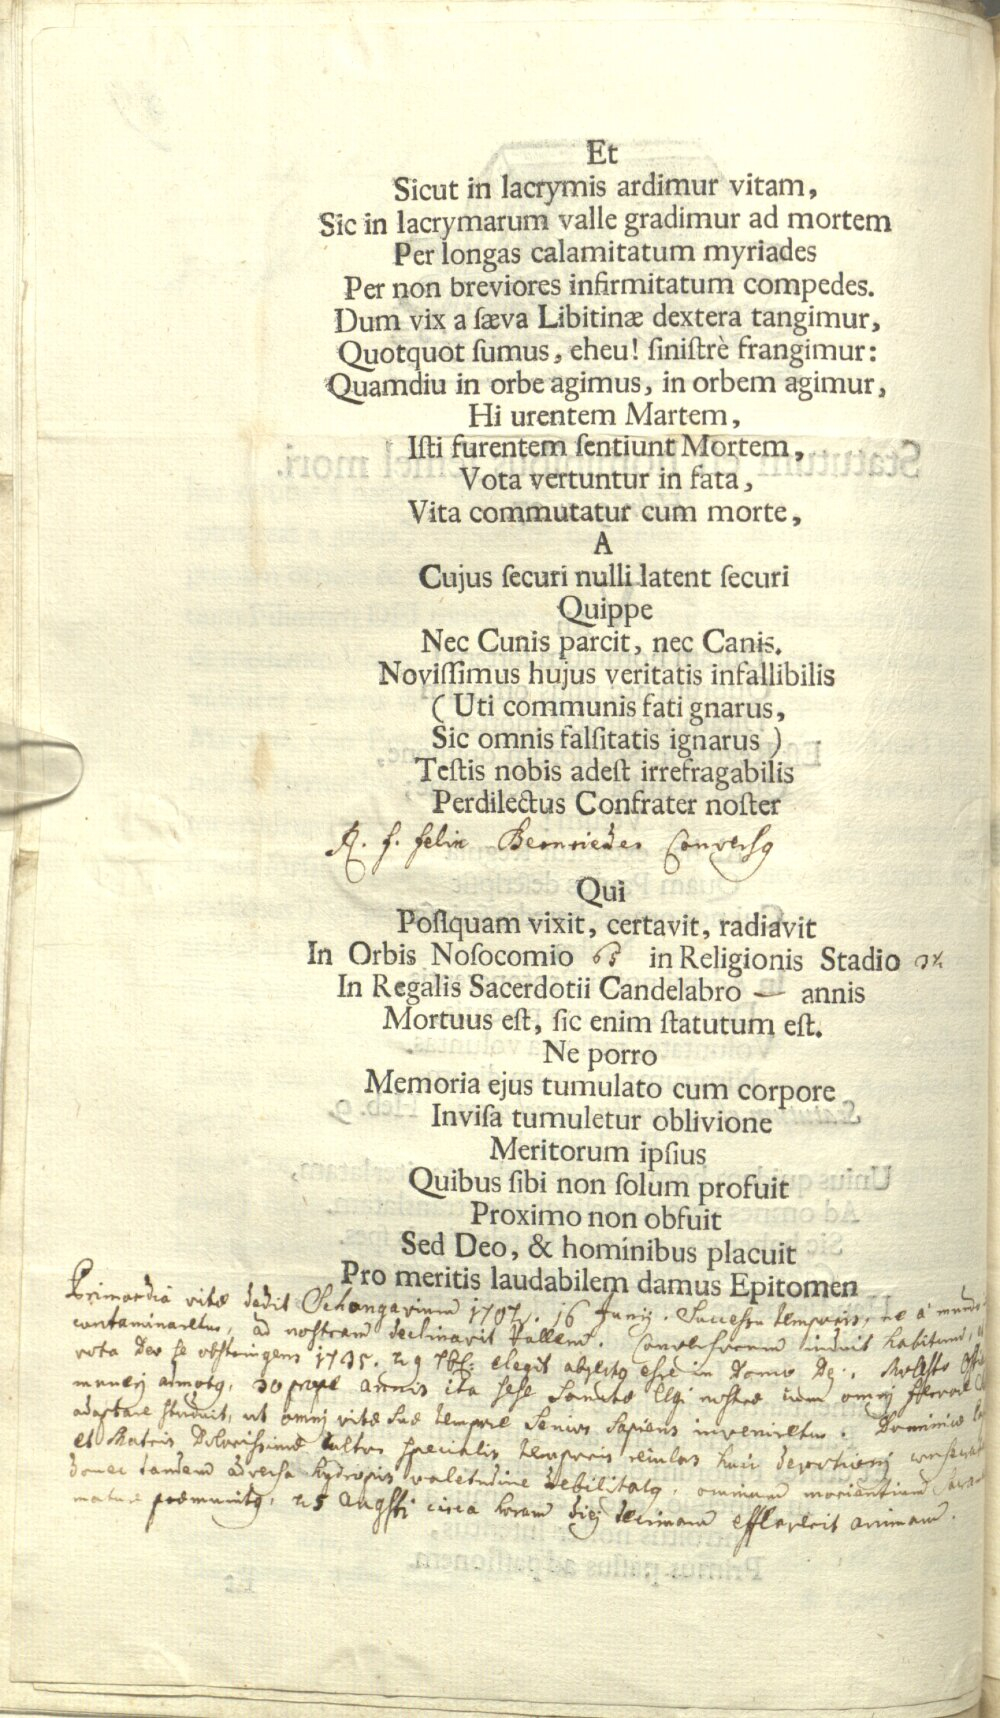 Et
Sicut in lacrymis ardimur vitam,
Sic in lacrymarum valle gradimur ad mortem
Per longas calamitatum myriades
Per non breviores infirmitatum compedes.
Dum vix a ſæva Libitinæ dextera tangimur,
Quotquot ſumus, eheu! ſiniſtrè frangimur:
Quamdiu in orbe agimus, in orbem agimur,
Hi urentem Martem,
Iſti furentem ſentiunt Mortem,
Vota vertuntur in fata,
Vita commutatur cum morte,
A
Cujus ſecuri nulli latent ſecuri
Quippe
Nec Cunis parcit, nec Canis.
Noviſſimus hujus veritatis infallibilis
( Uti communis fati gnarus,
Sic omnis falſitatis ignarus )
Teſtis nobis adeſt irrefragabilis
Perdilectus Confrater noſter
R. f. felix Conversq
Qui
Poſtquam vixit, certavit, radiavit
In Orbis Noſocomio 63 in Religionis Stadio
In Regalis Sacerdotii Candelabro — annis
Mortuus eſt, ſic enim ſtatutum eſt.
Ne porro
Memoria ejus tumulato cum corpore
Inviſa tumuletur oblivione
Meritorum ipſius
Quibus ſibi non ſolum profuit
Proximo non obfuit
Sed Deo, & hominibus placuit
Pro meritis laudabilem damus Epitomen
Primordia vitæ dedit Schongavium 16 Junij. Successu temporis, ne à mundo
contaminaretur, ad nostram declinavit Vallem. Conversorum induit habitum,
vota Deo se obstringens 1735. elegit abjectq esse in Domo Dei. Molesto
muneri admotq, 30 prope annis ita sese Sanctæ nostræ cum omni
adaptare studuit, ut omni vitæ suæ tempore Senior Sapiens inveniretur. Dominicæ
et Matris Dolorissimæ cultor specialis, temporis reculas huic devotioni
donec tandem adversa hydropis valetudine debilitatq, omnium morientium
mature præmunitq, 25 Augsti circa horam diei decimam efflaverit animam.